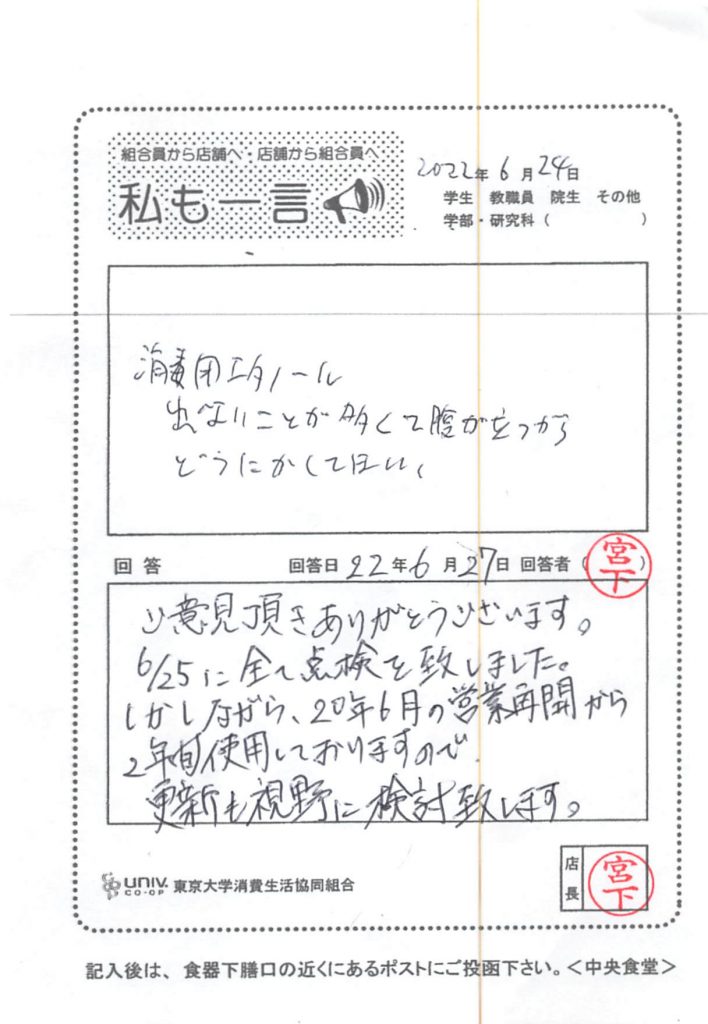 組合員から店舗へ・店舗から組合員へ
私も一言
2022年 6月 24日
学生 教職員 院生 その他
学部・研究科( )
消毒用エタノール
出ないことが多くて腹が立つから
どうにかしてほしい、
回答 回答日 22年 6月 27日 回答者( 宮下 )
ご意見頂きありがとうございます。
6/25に全て点検を致しました。
しかしながら、20年6月の営業再開から
2年間使用しておりますので
更新も視野に検討致します。
UNIV. CO-OP 東京大学消費生活協同組合
店長 宮下
記入後は、食器下膳口の近くにあるポストにご投函下さい。<中央食堂>